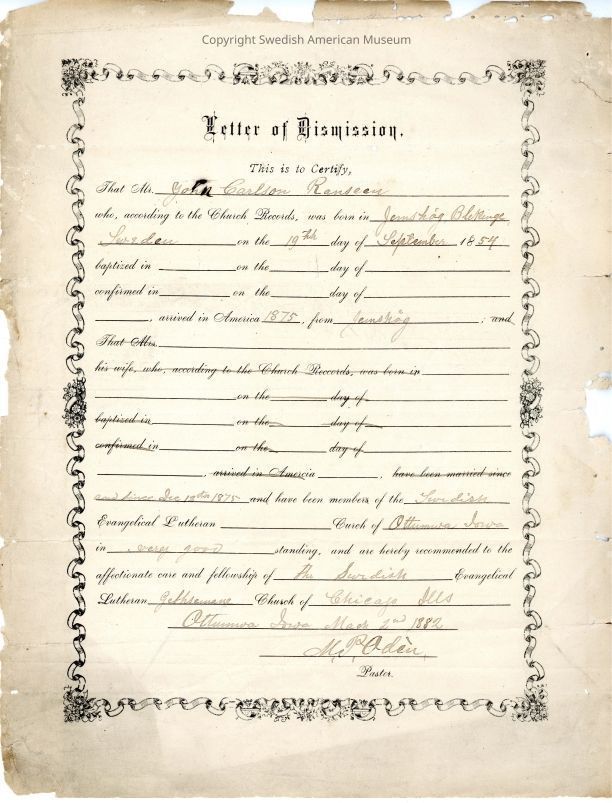 Copyright Swedish American Museum
Letter of Dismission.
This is to Certify,
That Mr. John Carlson Ranseen
who, according to the Church Records, was born in Jemshög Blekinge
Sweden on the 19th day of September 1854
baptized in on the day of
confirmed in on the day of
, arrived in America 1875, from Jemshög ; and
That Mrs.
his wife, who, according to the Church Records, was born in
on the day of
baptized in on the day of
confirmed in on the day of
, arrived in Amercia , have been married since
and since Dec 1875 and have been members of the Swedish
Evangelical Lutheran Curch of Ottumwa Iowa
in very good standing, and are hereby recommended to the
affectionate care and fellowship of the Swedish Evangelical
Lutheran Gethsemane Church of Chicago Ills
Ottumwa Iowa 2nd 1882
M. P. Odén
Pastor.